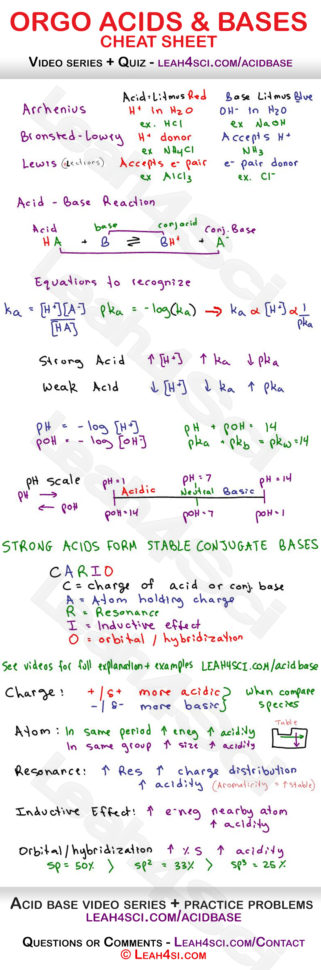 ORGO ACIDS & BASES
CHEAT SHEET
VIDEO SERIES + QUIZ - LEAH4SCI.COM/ACIDBASE
Acid=Litmus Red Base Litmus Blue
Arrhenius H⁺ in H₂O OH⁻ in H₂O
ex. HCl ex NaOH
Bronsted-Lowry H⁺ donor Accepts H⁺
ex NH₄Cl NH₃
Lewis (electrons) Accepts e⁻ pair e⁻ pair donor
ex AlCl₃ ex. Cl⁻
Acid - Base Reaction
Acid base conj acid Conj. Base
HA + B ⇌ BH⁺ + A⁻
Equations to recognize
ka = [H⁺][A⁻]/[HA] pka = -log(ka) → ka α [H⁺] α 1/pka
Strong Acid ↑[H⁺] ↑ ka ↓pka
Weak Acid ↓[H⁺] ↓ ka ↑ pka
pH = - log [H⁺] pH + pOH = 14
pOH = - log [OH] pka + pkb = pkw = 14
pH scale pH=1 pH=7 pH=14
pH → Acidic Neutral Basic
← pOH pOH=14 pOH=7 pOH=1
STRONG ACIDS FORM STABLE CONJUGATE BASES
CARIO
C = charge of acid or conj base
A = Atom holding charge
R = Resonance
I = Inductive effect
O = orbital / hybridization
See videos for full explanation + examples LEAH4SCI.COM/acidbase
Charge: +/δ+ more acidic } when compare
-/δ- more basic } species
Atom: In same period ↑ eneg ↑ acidity Table
In same group ↑ size ↑ acidity
Resonance: ↑ Res ↑ charge distribution
↑ acidity (Aromaticity = ↑stable)
Inductive Effect: ↑ e-neg nearby atom
↑ acidity
Orbital/hybridization ↑ % S ↑ acidity
sp = 50% > sp² = 33% > sp³ = 25%
ACID BASE VIDEO SERIES + PRACTICE PROBLEMS
LEAH4SCI.COM/ACIDBASE
QUESTIONS OR COMMENTS - LEAH4SCI.COM/CONTACT
© LEAH4SCI.COM
Leah4Sci